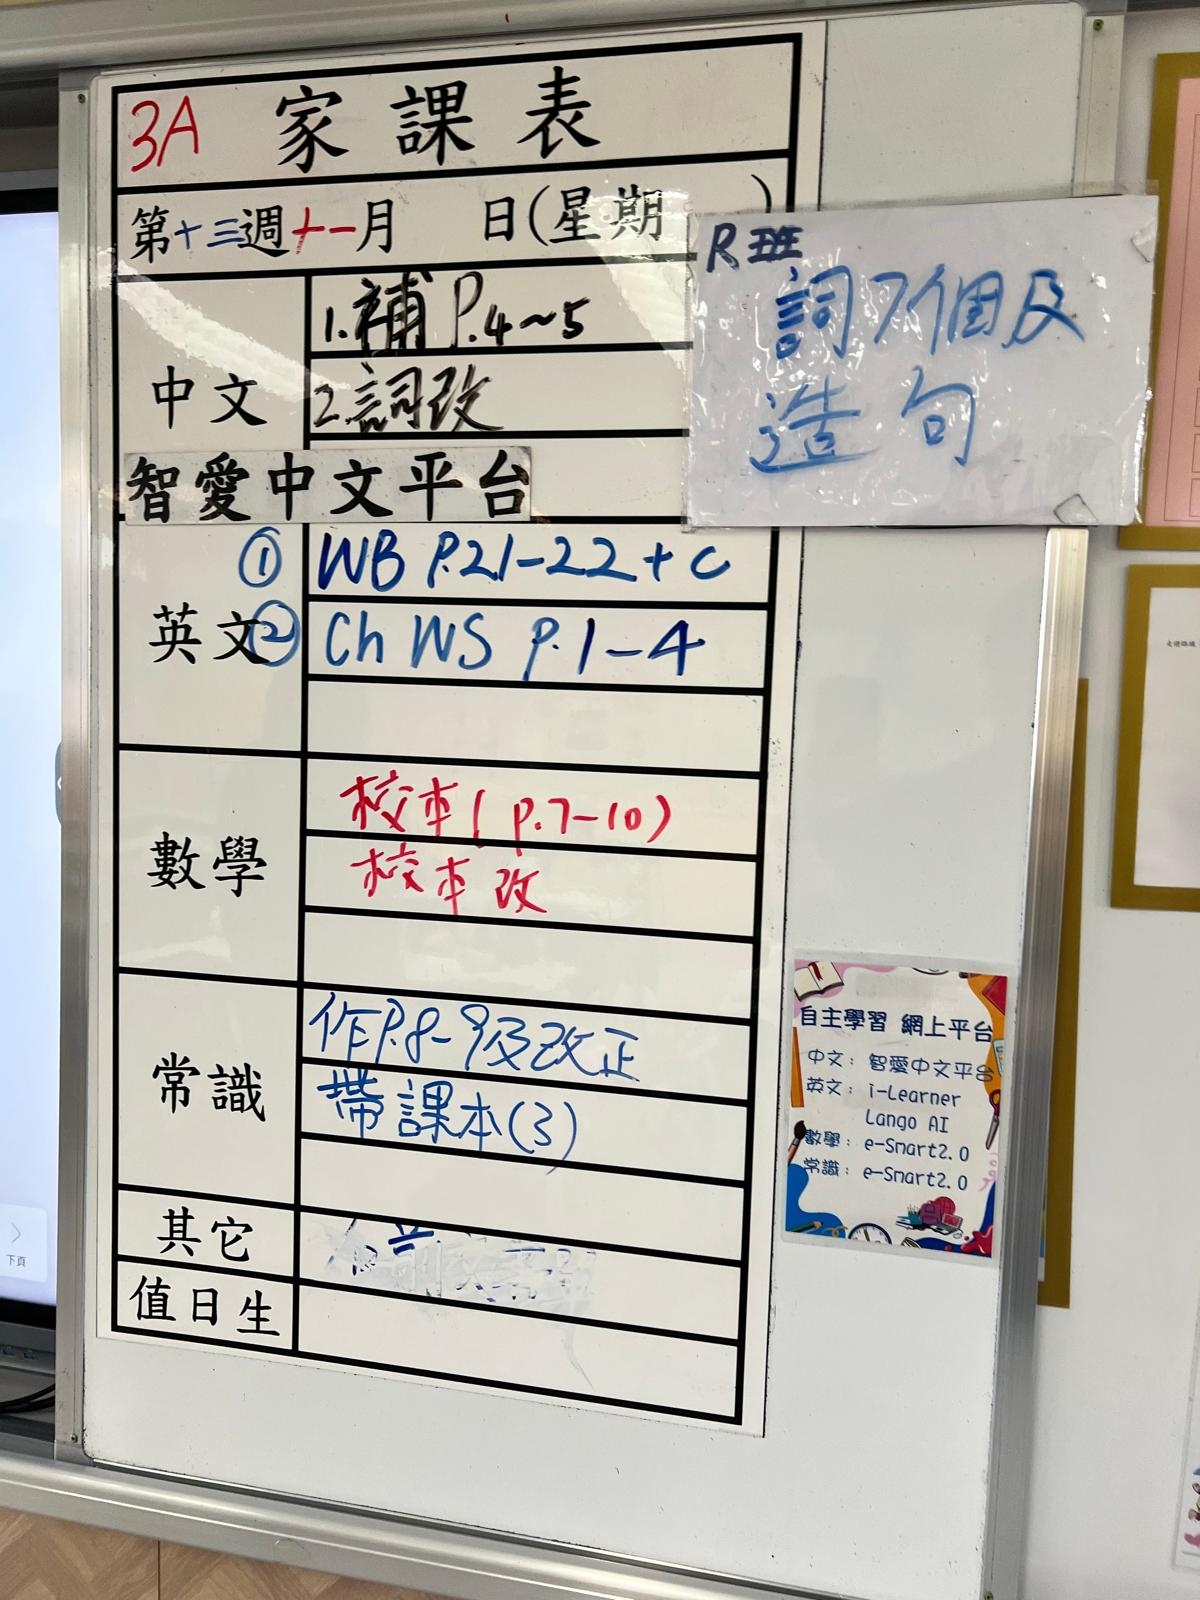 3A 家課表
第十三週十一月 日(星期 )
中文
1.補 P.4~5
2.詞改
智愛中文平台
R班
詞7個及
造句
英文
① WB P.21-22+c
② Ch WS P.1-4
數學
校本(p.7-10)
校本改
常識
作P.8-9及改正
帶課本(3)
其它
值日生
自主學習 網上平台
中文: 智愛中文平台
英文: i-Learner
Lango AI
數學: e-Smart2.0
常識: e-Smart2.0
下頁